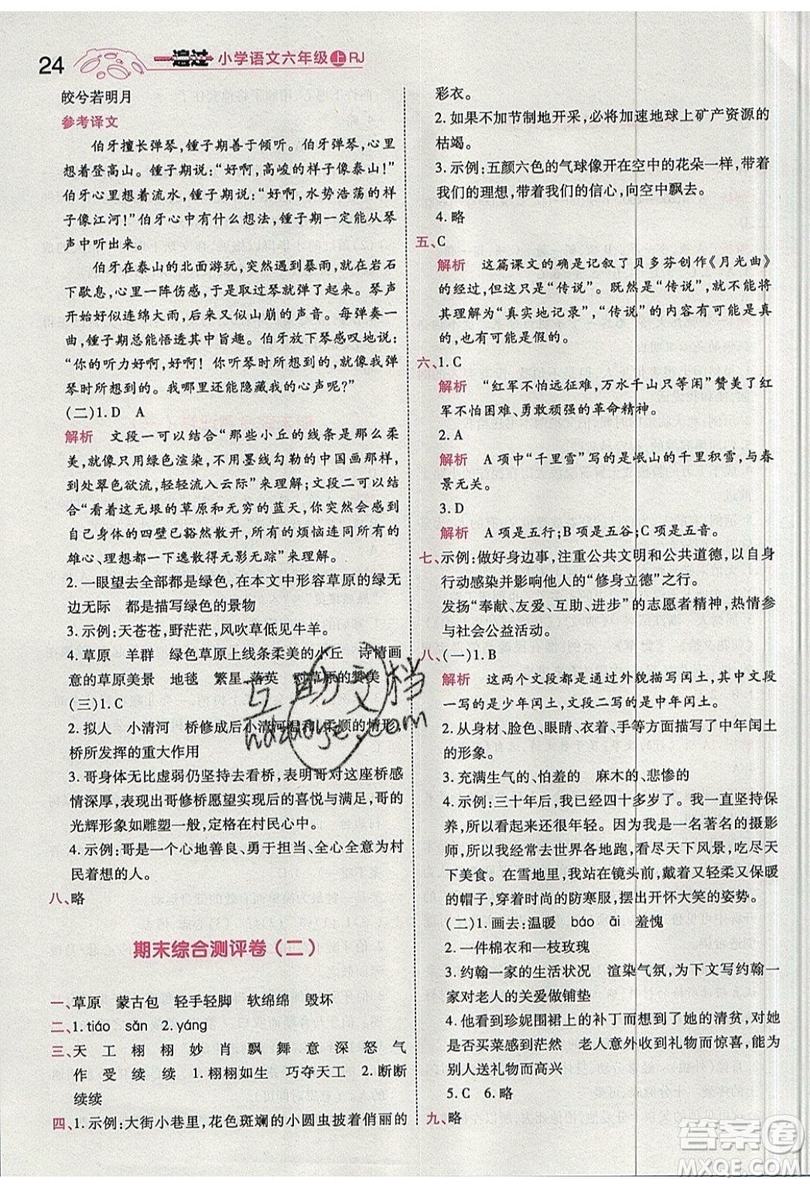 24
一遍过 小学语文六年级 上 RJ
皎兮若明月
参考译文
伯牙擅长弹琴，锺子期善于倾听。伯牙弹琴，心里
想着登高山。锺子期说：“好啊，高峻的样子像泰山！”
伯牙心里想着流水，锺子期说：“好啊，水势浩荡的样子
像江河！”伯牙心中有什么想法，锺子期一定会从琴声
中听出来。
伯牙在泰山的北面游玩，突然遇到暴雨，就在岩石
下歇息，心里一阵伤感，于是就拿过琴弹起来。琴声
开始好似连绵大雨，再又似山崩的声音。每弹奏一
曲，锺子期总能悟透其中旨趣。伯牙放下琴感叹地说：
“你的听力好啊！听力好啊！你所想到的，就像我弹
琴时所想到的。我哪里还能隐藏我的心声呢？”
(二)1.D A
解析 文段一可以结合“那些小丘的线条是那么柔
美，就像只用绿色渲染，不用墨线勾勒的中国画那样，
到处翠色欲流，轻轻流入云际”来理解；文段二可以结
合“看着无垠的草原和无穷的蓝天，你突然会感到自
己身体的四壁已豁然散开，所有的烦恼连同所有的
雄心、理想都一下逸散得无影无踪”来理解。
2.一眼望去全部都是绿色，在本文中形容草原的无
边无际 都是描写绿色的景物
3.示例：天苍苍，野茫茫，风吹草低见牛羊。
4.草原 羊群 绿色草原上线条柔美的小丘 诗情画
意的草原美景 地毯 繁星、落英 对草原的赞美
(三)1.C
2.拟人 小清河 桥修成后小清河温和、柔顺的情形
桥所发挥的重大作用
3.哥身体无比虚弱仍坚持去看桥，表明哥对这座桥感
情深厚，表现出哥修桥愿望实现后的喜悦与满足。哥的
光辉形象如雕塑一般，定格在村民心中。
4.示例：哥是一个心地善良、勇于担当、全心全意为村
民着想的人。
八、略
期末综合测评卷（二）
一、草原 蒙古包 轻手轻脚 软绵绵 毁坏
二、1.tiáo sǎn 2.yáng
三、天 工 栩 栩 妙 肖 飘 舞 意 深 怒 气
作 受 续 续 1.栩栩如生 巧夺天工 2.断断
续续
四、1.示例：大街小巷里，花色斑斓的小圆虫披着俏丽的
彩衣。
2.如果不加节制地开采，必将加速地球上矿产资源的
枯竭。
3.示例：五颜六色的气球像开在空中的花朵一样，带着
我们的理想，带着我们的信心，向空中飘去。
4.略
五、C
解析 这篇课文的确是记叙了贝多芬创作《月光曲》
的经过，但这是“传说”。既然是“传说”，就不能将
其理解为“真实地记录”，“传说”的内容有可能是
真的，也有可能是假的。
六、1.C
解析 “红军不怕远征难，万水千山只等闲”赞美了红
军不怕困难、勇敢顽强的革命精神。
2.A
解析 A项中“千里雪”写的是千里积雪，与春
景无关。
3.D
解析 A项是五行；B项是五谷；C项是五音。
七、示例：做好身边事，注重公共文明和公共道德，用实际
行动感染并影响他人的“修身立德”之行。
发扬“奉献、友爱、互助、进步”的志愿者精神，热情参
与社会公益活动。
八、(一)1.B
解析 这两个文段都是通过外貌描写闰土的，文段
一写的是少年闰土，文段二写的是中年闰土。
2.从身材、脸色、眼睛、衣着、手等方面描写了中年闰土
的形象。
3.充满生气的、怕羞的 麻木的、悲惨的
4.示例：三十年后，我已经四十多岁了。我特别注意保
养，看起来还很年轻。我成为了一名著名的摄影
师，我尽情享受着人生，看尽天下风景，吃尽天下
美食。在雪地里，我站在镜头前，戴着时尚又暖和
的帽子，穿着时尚的防寒服，摆出开怀大笑的姿势。
(二)1.画去：温暖 báo āi 羞愧
2.一件棉衣和一枝玫瑰
3.与约翰一家的生活状况 渲染气氛，为下文写约翰一
家对老人的关爱做铺垫
4.示例：他看到珍妮围裙上的补丁而想到她的清贫，对他
有空买菜感到生气，而老人在意外收到礼物而惊喜
也为能给别人送去礼物而高兴
5.C 6.略
九、略
互助文档
huzhuoye.com
答案圈
MXQE.COM